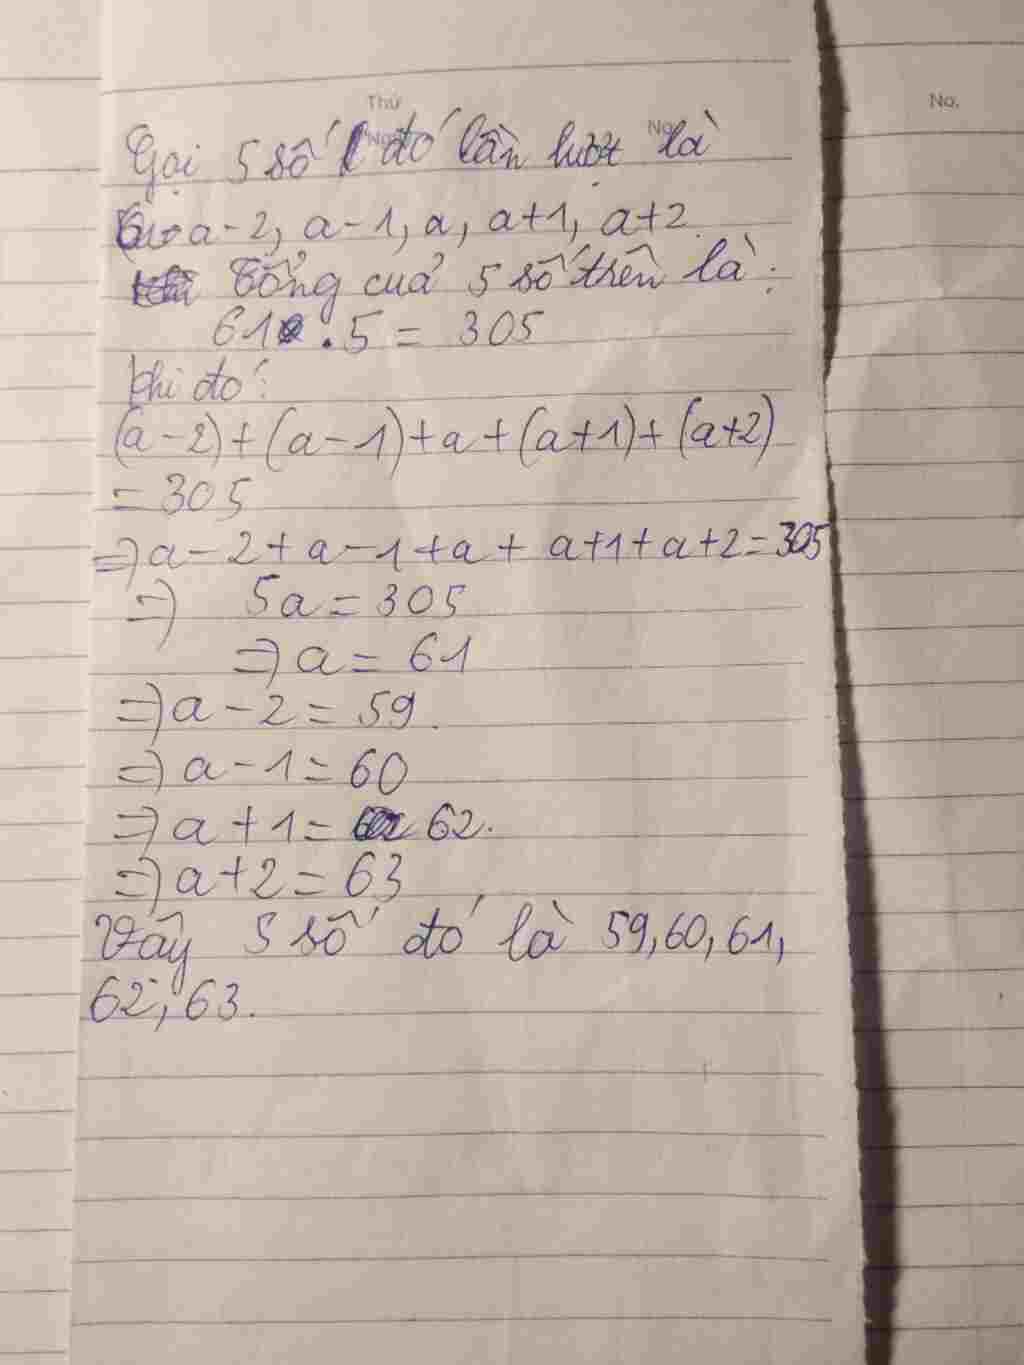 Thứ
Ngày
No.
No.
Gọi 5 số đó lần lượt là
a-2, a-1, a, a+1, a+2
Tổng của 5 số trên là:
61 . 5 = 305
Khi đó:
(a-2)+(a-1)+a+(a+1)+(a+2)
= 305
=> a-2+a-1+a+ a+1+a+2=305
=> 5a = 305
=> a = 61
=> a - 2 = 59.
=> a - 1 = 60
=> a + 1 = 62.
=> a+2 = 63
Vậy 5 số đó là 59,60,61,
62, 63.